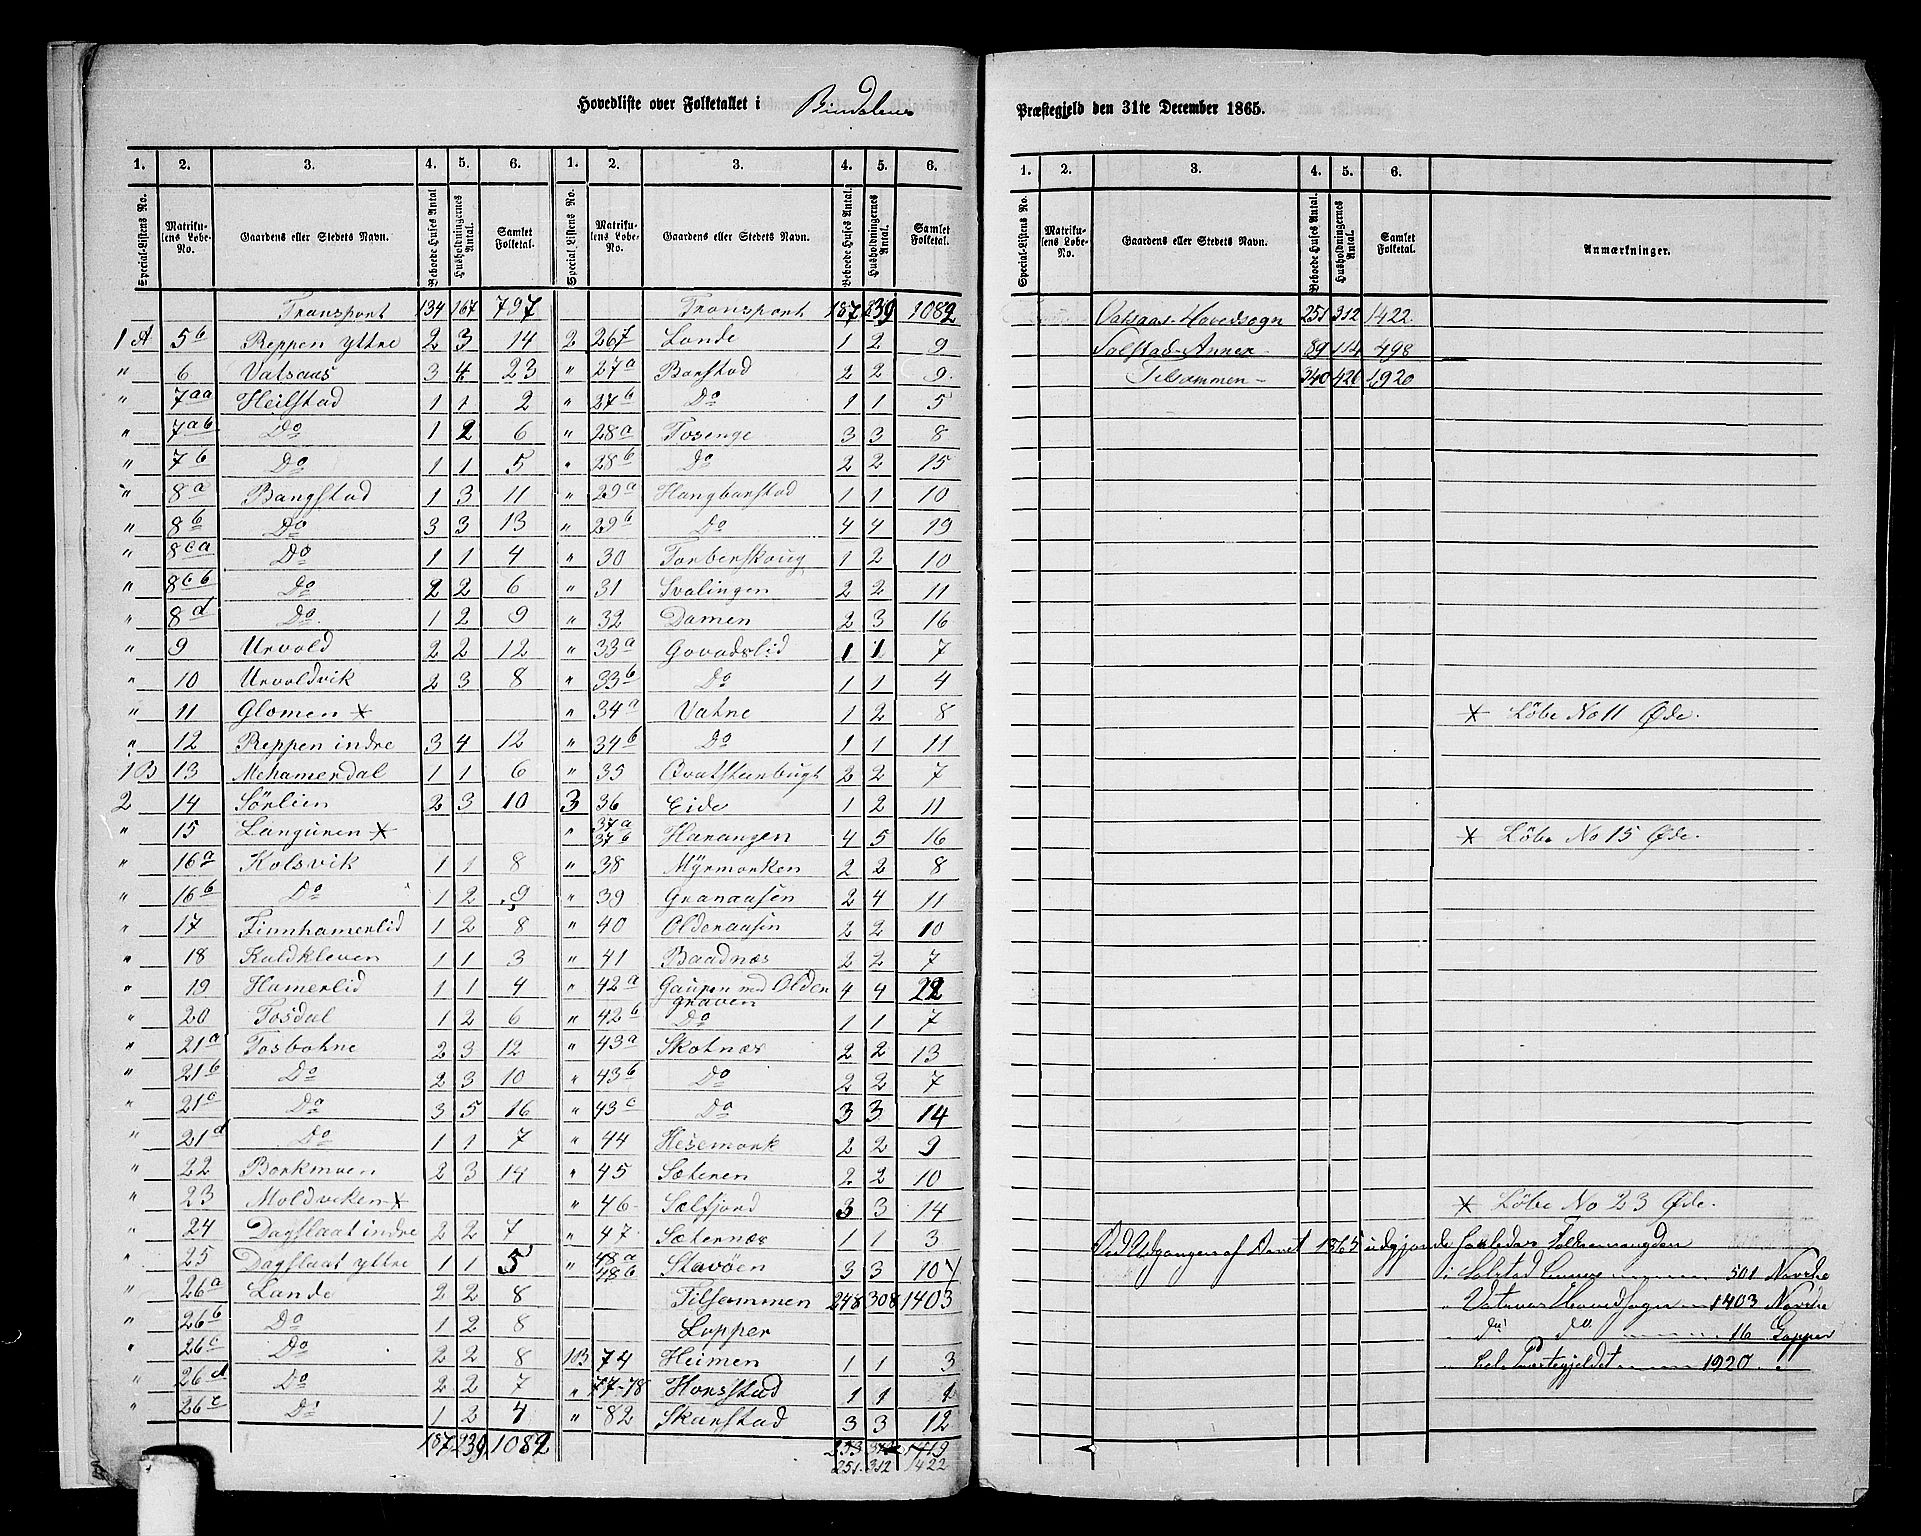 Hovedliste over Folketallet i Bindalens Præstegjeld den 31te December 1865.
1. 2. 3. 4. 5. 6. 1. 2. 3. 4. 5. 6.
Special-Listens No. Matrikulens Løbe-No. Gaardens eller Stedets Navn. Beboede Huses Antal Husholdningernes Antal. Samlet Folketal. Special Listens No. Matrikulens Løbe-No. Gaardens eller Stedets Navn. Beboede Huses Antal. Husholdningernes Antal. Samlet Folketal.
Transport 134 167 797 Transport 187 239 1082
1 A 5b Reppen yttre 2 3 14 2 267 Lande 1 2 9
" 6 Vatsaas 3 4 23 " 27a Barstad 2 2 9
" 7aa Heilstad 1 1 2 " 27b Do 1 1 5
" 7ab Do 1 2 6 " 28a Tosenge 3 3 8
" 7b Do 1 1 5 " 28b Do 2 2 15
" 8a Bangstad 1 3 11 " 29a Hangbarstad 1 1 10
" 8b Do 3 3 13 " 29b Do 4 4 19
" 8ca Do 1 1 4 " 30 Torberskoug 1 2 10
" 8cb Do 2 2 6 " 31 Svalingen 2 2 11
" 8d Do 1 2 9 " 32 Damen 2 3 16
" 9 Urvold 2 2 12 " 33a Govadslid 1 1 7
" 10 Urvoldvik 2 3 8 " 33b Do 1 1 4
" 11 Glomen × " 34a Vatne 1 2 8
" 12 Reppen indre 3 4 12 " 34b Do 1 1 11
1 B 13 Mehamerdal 1 1 6 " 35 Qvatsteenbugt 2 2 7
2 14 Sørlien 2 3 10 3 36 Eide 1 2 11
" 15 Languren × " 37a 37b Harangen 4 5 16
" 16a Kolsvik 1 1 8 " 38 Myrmarken 2 2 8
" 16b Do 1 2 9 " 39 Granaasen 2 4 11
" 17 Finnhamerlid 1 2 8 " 40 Olderaasen 2 2 10
" 18 Kaldkleven 1 1 3 " 41 Baadnæs 2 2 7
" 19 Hamerlid 1 1 4 " 42a Gaupen med Older 4 4 22
graven
" 20 Tosdal 1 2 6 " 42b Do 1 1 7
" 21a Tosbotne 2 3 12 " 43a Skotnæs 2 2 13
" 21b Do 2 3 10 " 43b Do 2 2 7
" 21c Do 3 5 16 " 43c Do 3 3 14
" 21d Do 1 1 7 " 44 Hesemark 2 2 9
" 22 Borkmoen 2 3 14 " 45 Sæteren 2 2 10
" 23 Moldviken × " 46 Sælfjord 3 3 14
" 24 Dagslaat indre 2 2 7 " 47 Sæternæs 1 1 3
" 25 Dagslaat yttre 1 1 5 " 48a 48b Stavöen 3 3 10
" 26a Lande 2 2 8 Tilsammen 248 308 1403
" 26b Do 1 2 8 Lapper
" 26c Do 2 2 8 1B 74 Heimen 1 1 3
" 26d Do 2 2 7 " 77-78 Horsstad 1 1 1
" 26e Do 1 2 4 " 82 Skarstad 3 3 12
187 239 1082 253 312 1419
251 312 1422
1. 2. 3. 4. 5. 6.
Special-Listens No. Matrikulens Løbe-No. Gaardens eller Stedets Navn. Beboede Huses Antal. Husholdningernes Antal. Samlet Folketal. Anmærkninger.
Vatsaas-Hovedsogn 251 312 1422
Solstad-Annex 89 114 498
Tilsammen 340 426 1920
× Löbe No 11 Øde.
× Löbe No 15 Øde.
× Löbe No 23 Øde.
Ved Udgangen af Aaret 1865 udgjorde saaledes Folkemængden
i Solstad Annex 501 Norske
" Vatsaas Hovedsogn 1403 Norske
" do do 16 Lapper
" hele Præstegjeldet 1920